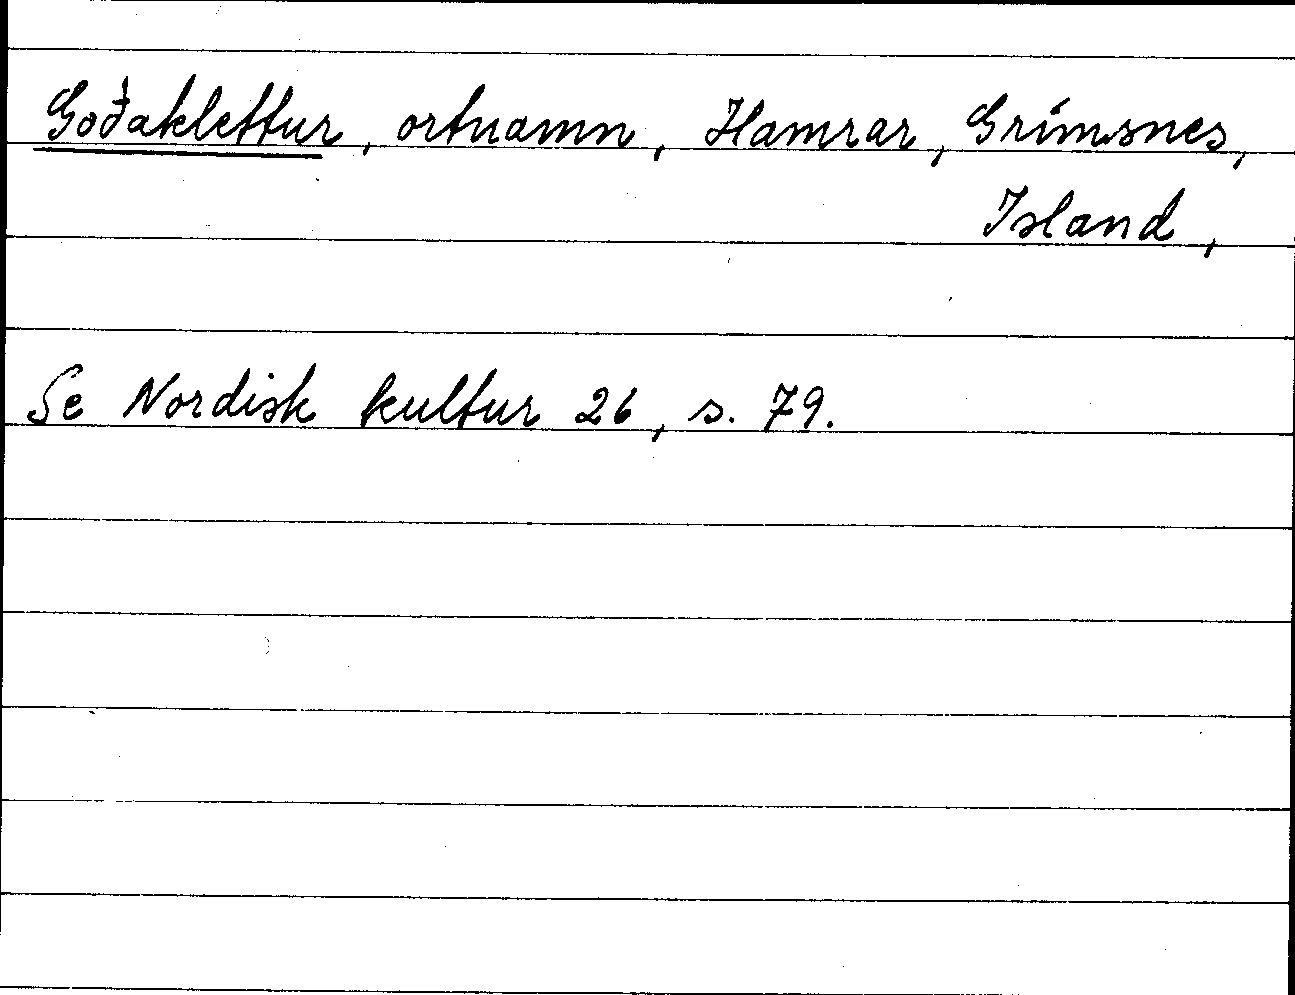 Goðaklettur, ortnamn, Hamrar, Grímsnes,
Island,
Se Nordisk kultur 26, s. 79.